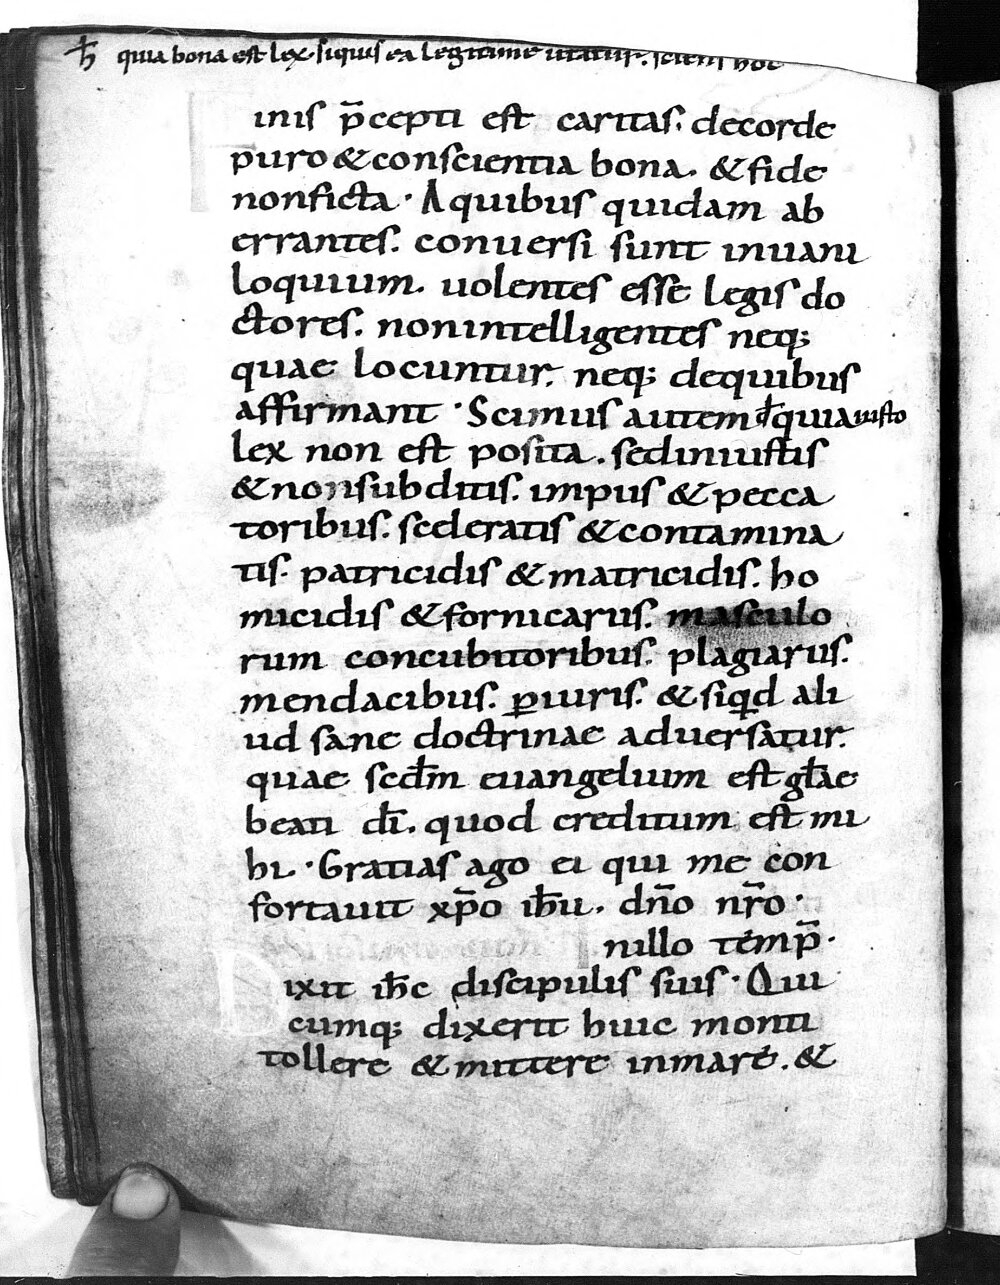 ħ quia bona est lex. siquis ea legitime utatur. sciens hoc
Finis p̄cepti est caritas. decorde
puro & conscientia bona. & fide
nonficta · Aquibus quidam ab
errantes. conuersi sunt inuani
loquium. uolentes esse legis do
ctores. nonintelligentes neq;
quae locuntur. neq; dequibus
affirmant · Scimus autem đ quia iusto
lex non est posita. sediniustis
& nonsubditis. impiis & pecca
toribus. sceleratis & contamina
tis. patricidis & matricidis. ho
micidis & fornicariis. masculo
rum concubitoribus. plagiariis.
mendacibus. ꝑiuris. & siqd ali
ud sane doctrinae aduersatur.
quae secdm̄ euangelium est gl̄ae
beati dī. quod creditum est mi
hi. · Gratias ago ei qui me con
fortauit xp̄o ih̄u. dn̄o nr̄o ·
Inillo temp̄ ·
Dixit ih̄c discipulis suis · Qui
cumq; dixerit huic monti
tollere & mittere inmare. &